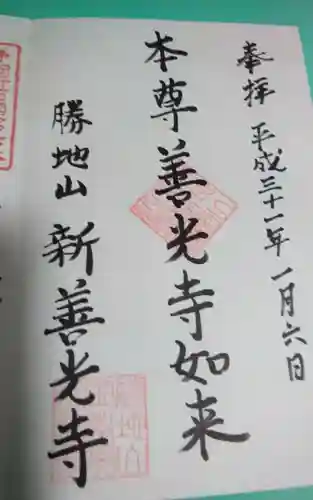 奉拝 平成三十一年 一月六日
本尊善光寺如来
勝地山 新善光寺